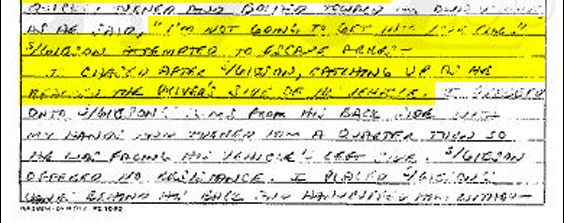 QUICKLY TURNED AND BOLTED TOWARD
AS HE SAID, "I'M NOT GOING TO GET INTO YOUR CAR."
S/GIBSON ATTEMPTED TO ESCAPE ARREST—
I CHASED AFTER S/GIBSON, CATCHING UP AS HE
REACHED THE DRIVER'S SIDE OF HIS VEHICLE. I
ONTO S/GIBSON'S ARMS FROM HIS BACK SIDE WITH
MY HANDS AND TURNED HIM A QUARTER TURN SO
HE WAS FACING HIS VEHICLE'S LEFT SIDE. S/GIBSON
OFFERED NO RESISTANCE. I PLACED S/GIBSON'S
HANDS BEHIND HIS BACK AND HANDCUFFED HIM WITHOUT—